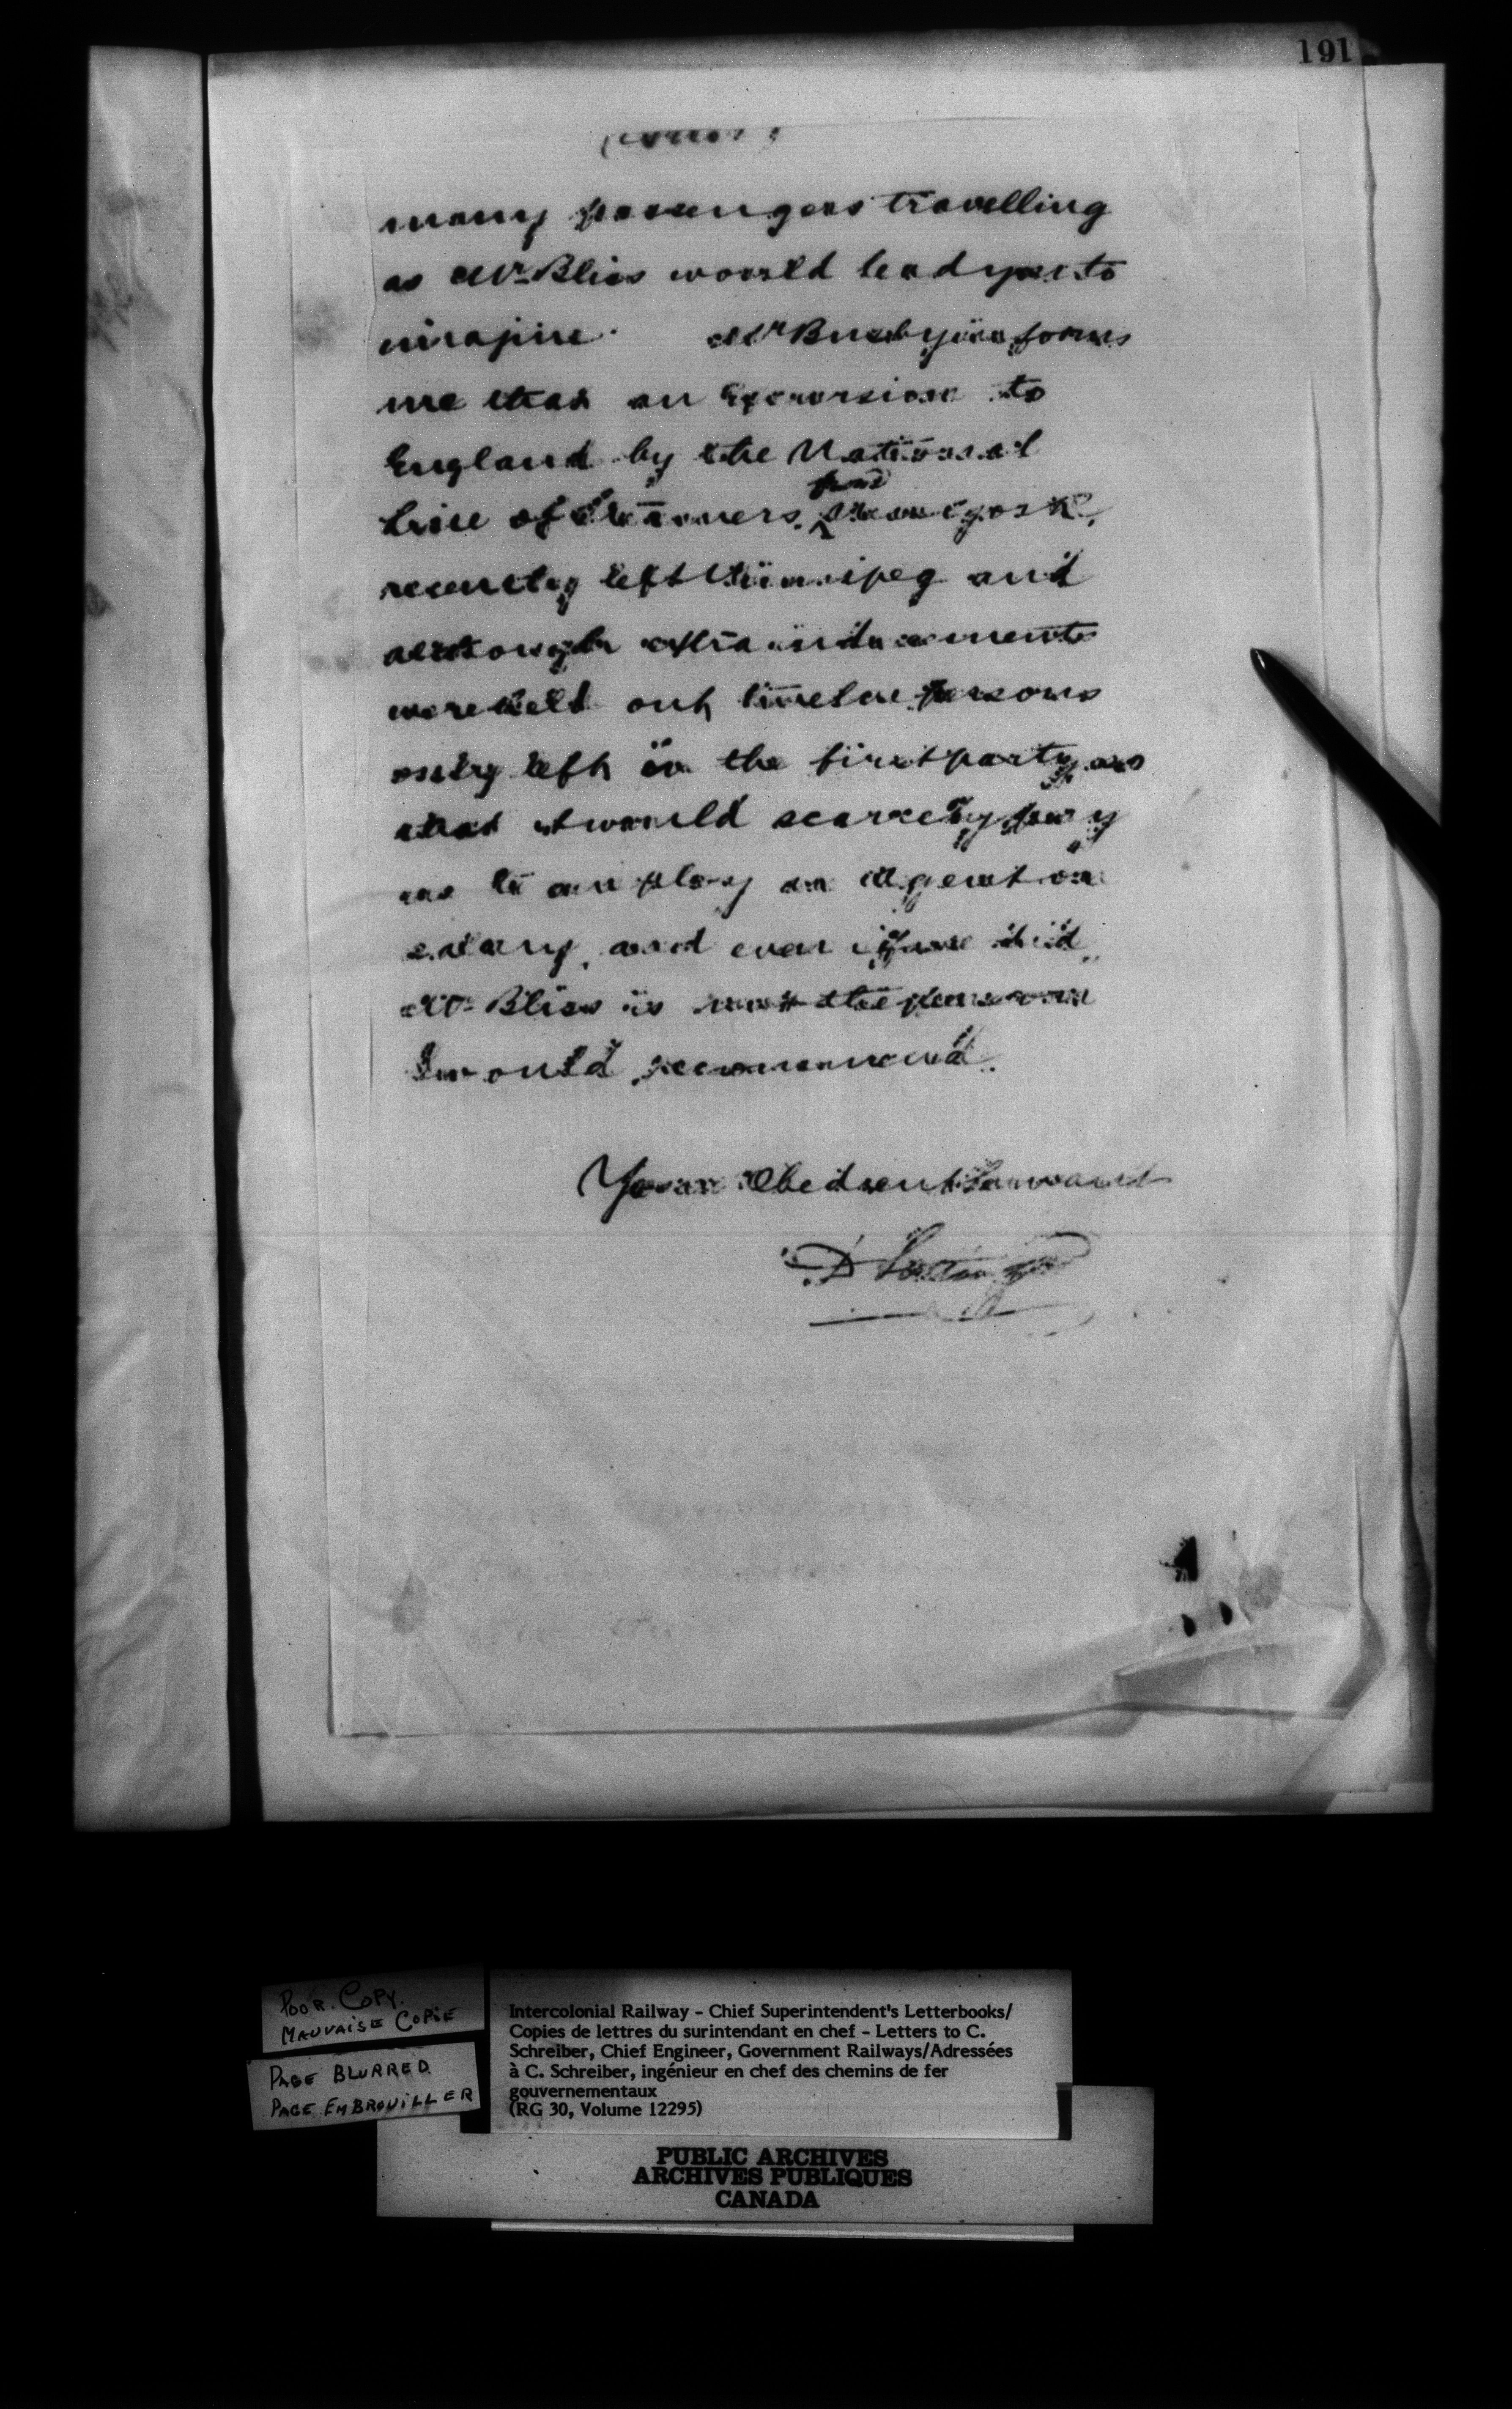 191
many passengers travelling
as Mr Bliss would lead you to
Mr Busby informs
me that an Excursion to
England by the National
Line of Steamers, from New York,
recently left Winnipeg and
although extra inducements
were held out twelve persons
only left in the first party, so
that it would scarcely pay
us to employ an Agent on
salary, and even if we did,
Mr Bliss is not the person
I would recommend.
Your Obedient Servant
D Pottinger
POOR COPY.
MAUVAISE COPIE
PAGE BLURRED
PAGE EMBROUILLER
Intercolonial Railway - Chief Superintendent's Letterbooks/
Copies de lettres du surintendant en chef - Letters to C.
Schreiber, Chief Engineer, Government Railways/Adressées
à C. Schreiber, ingénieur en chef des chemins de fer
gouvernementaux
(RG 30, Volume 12295)
PUBLIC ARCHIVES
ARCHIVES PUBLIQUES
CANADA